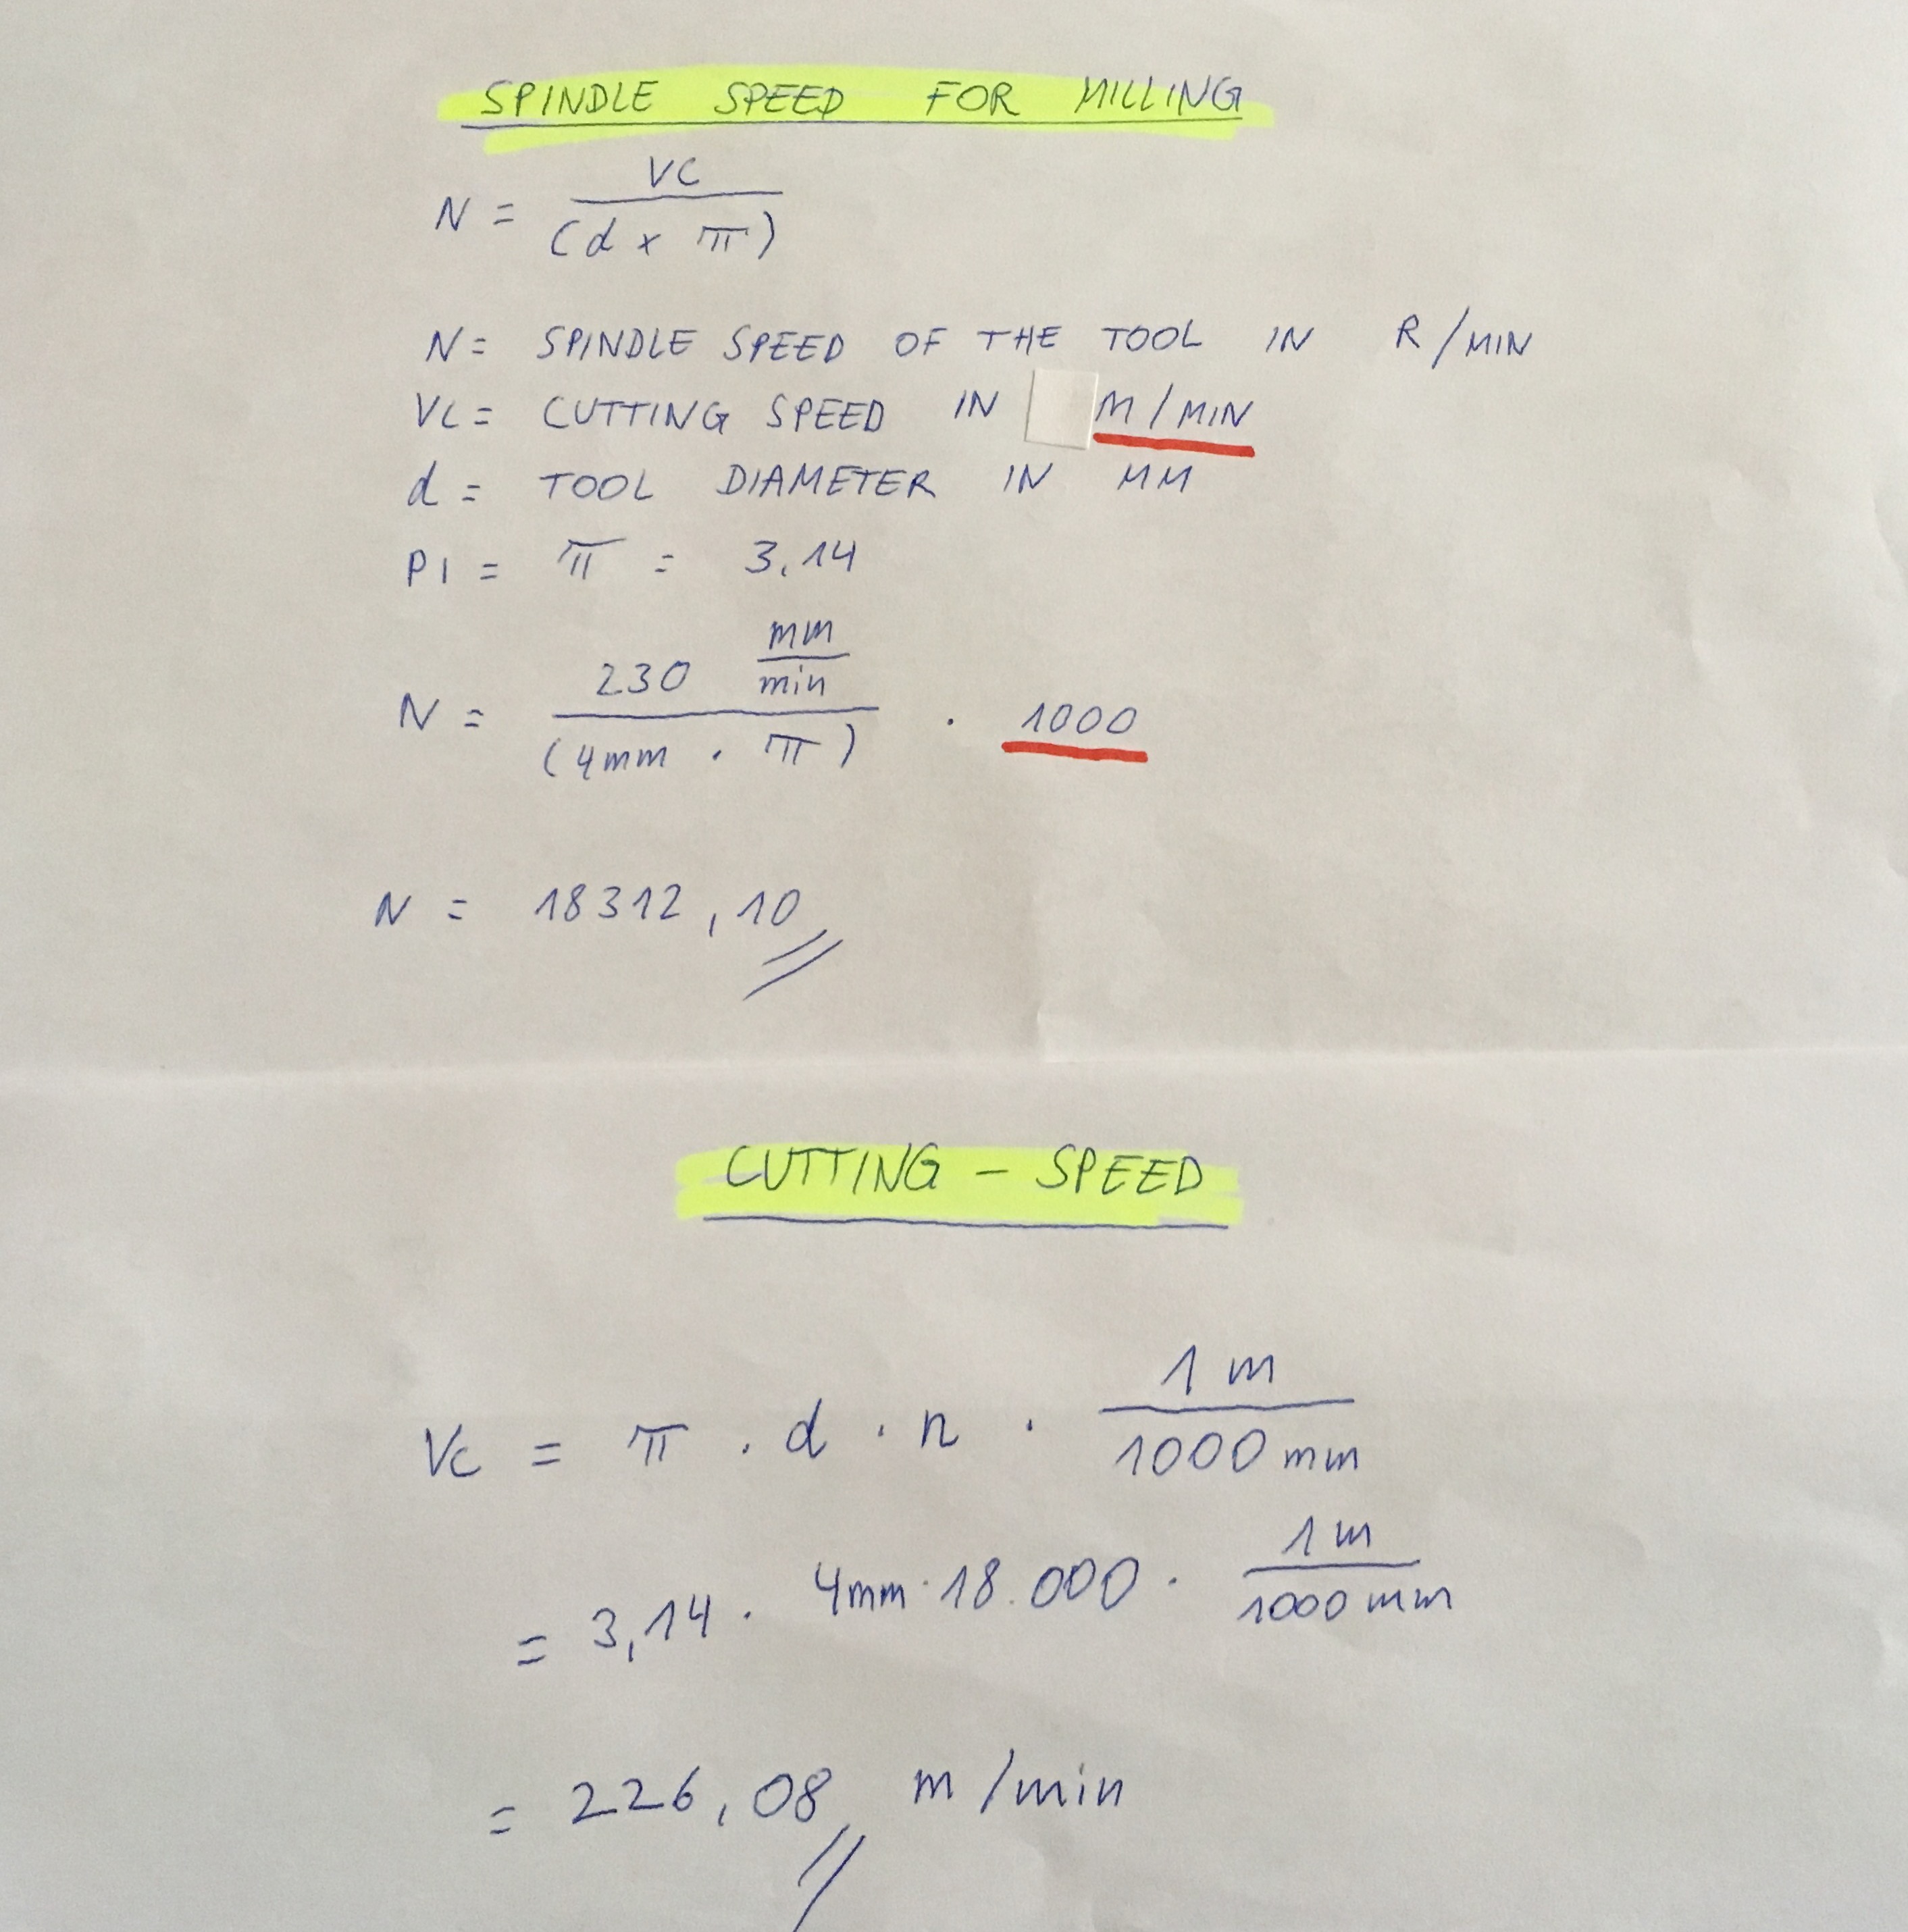 SPINDLE SPEED FOR MILLING
N = VC / (d x π)
N = SPINDLE SPEED OF THE TOOL IN R/MIN
VC = CUTTING SPEED IN M/MIN
d = TOOL DIAMETER IN MM
PI = π = 3,14
N = 230 mm/min / (4mm · π) · 1000
N = 18312,10
CUTTING - SPEED
Vc = π · d · n · 1 m / 1000 mm
= 3,14 · 4mm · 18.000 · 1 m / 1000 mm
= 226,08 m/min